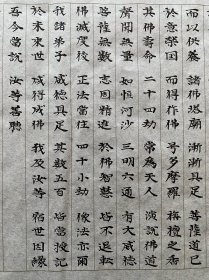 而以供養 諸佛塔廟 漸漸具足 菩薩道已
於意樂國 而得作佛 号多摩羅 栴檀之香
其佛壽命 二十四劫 常為天人 演說佛道
聲聞無量 如恒河沙 三明六通 有大威德
菩薩無數 志固精進 於佛智慧 皆不退轉
佛滅度後 正法當住 四十小劫 像法亦爾
我諸弟子 威德具足 其數五百 皆當授記
於未來世 咸得成佛 我及汝等 宿世因緣
吾今當說 汝等善聽